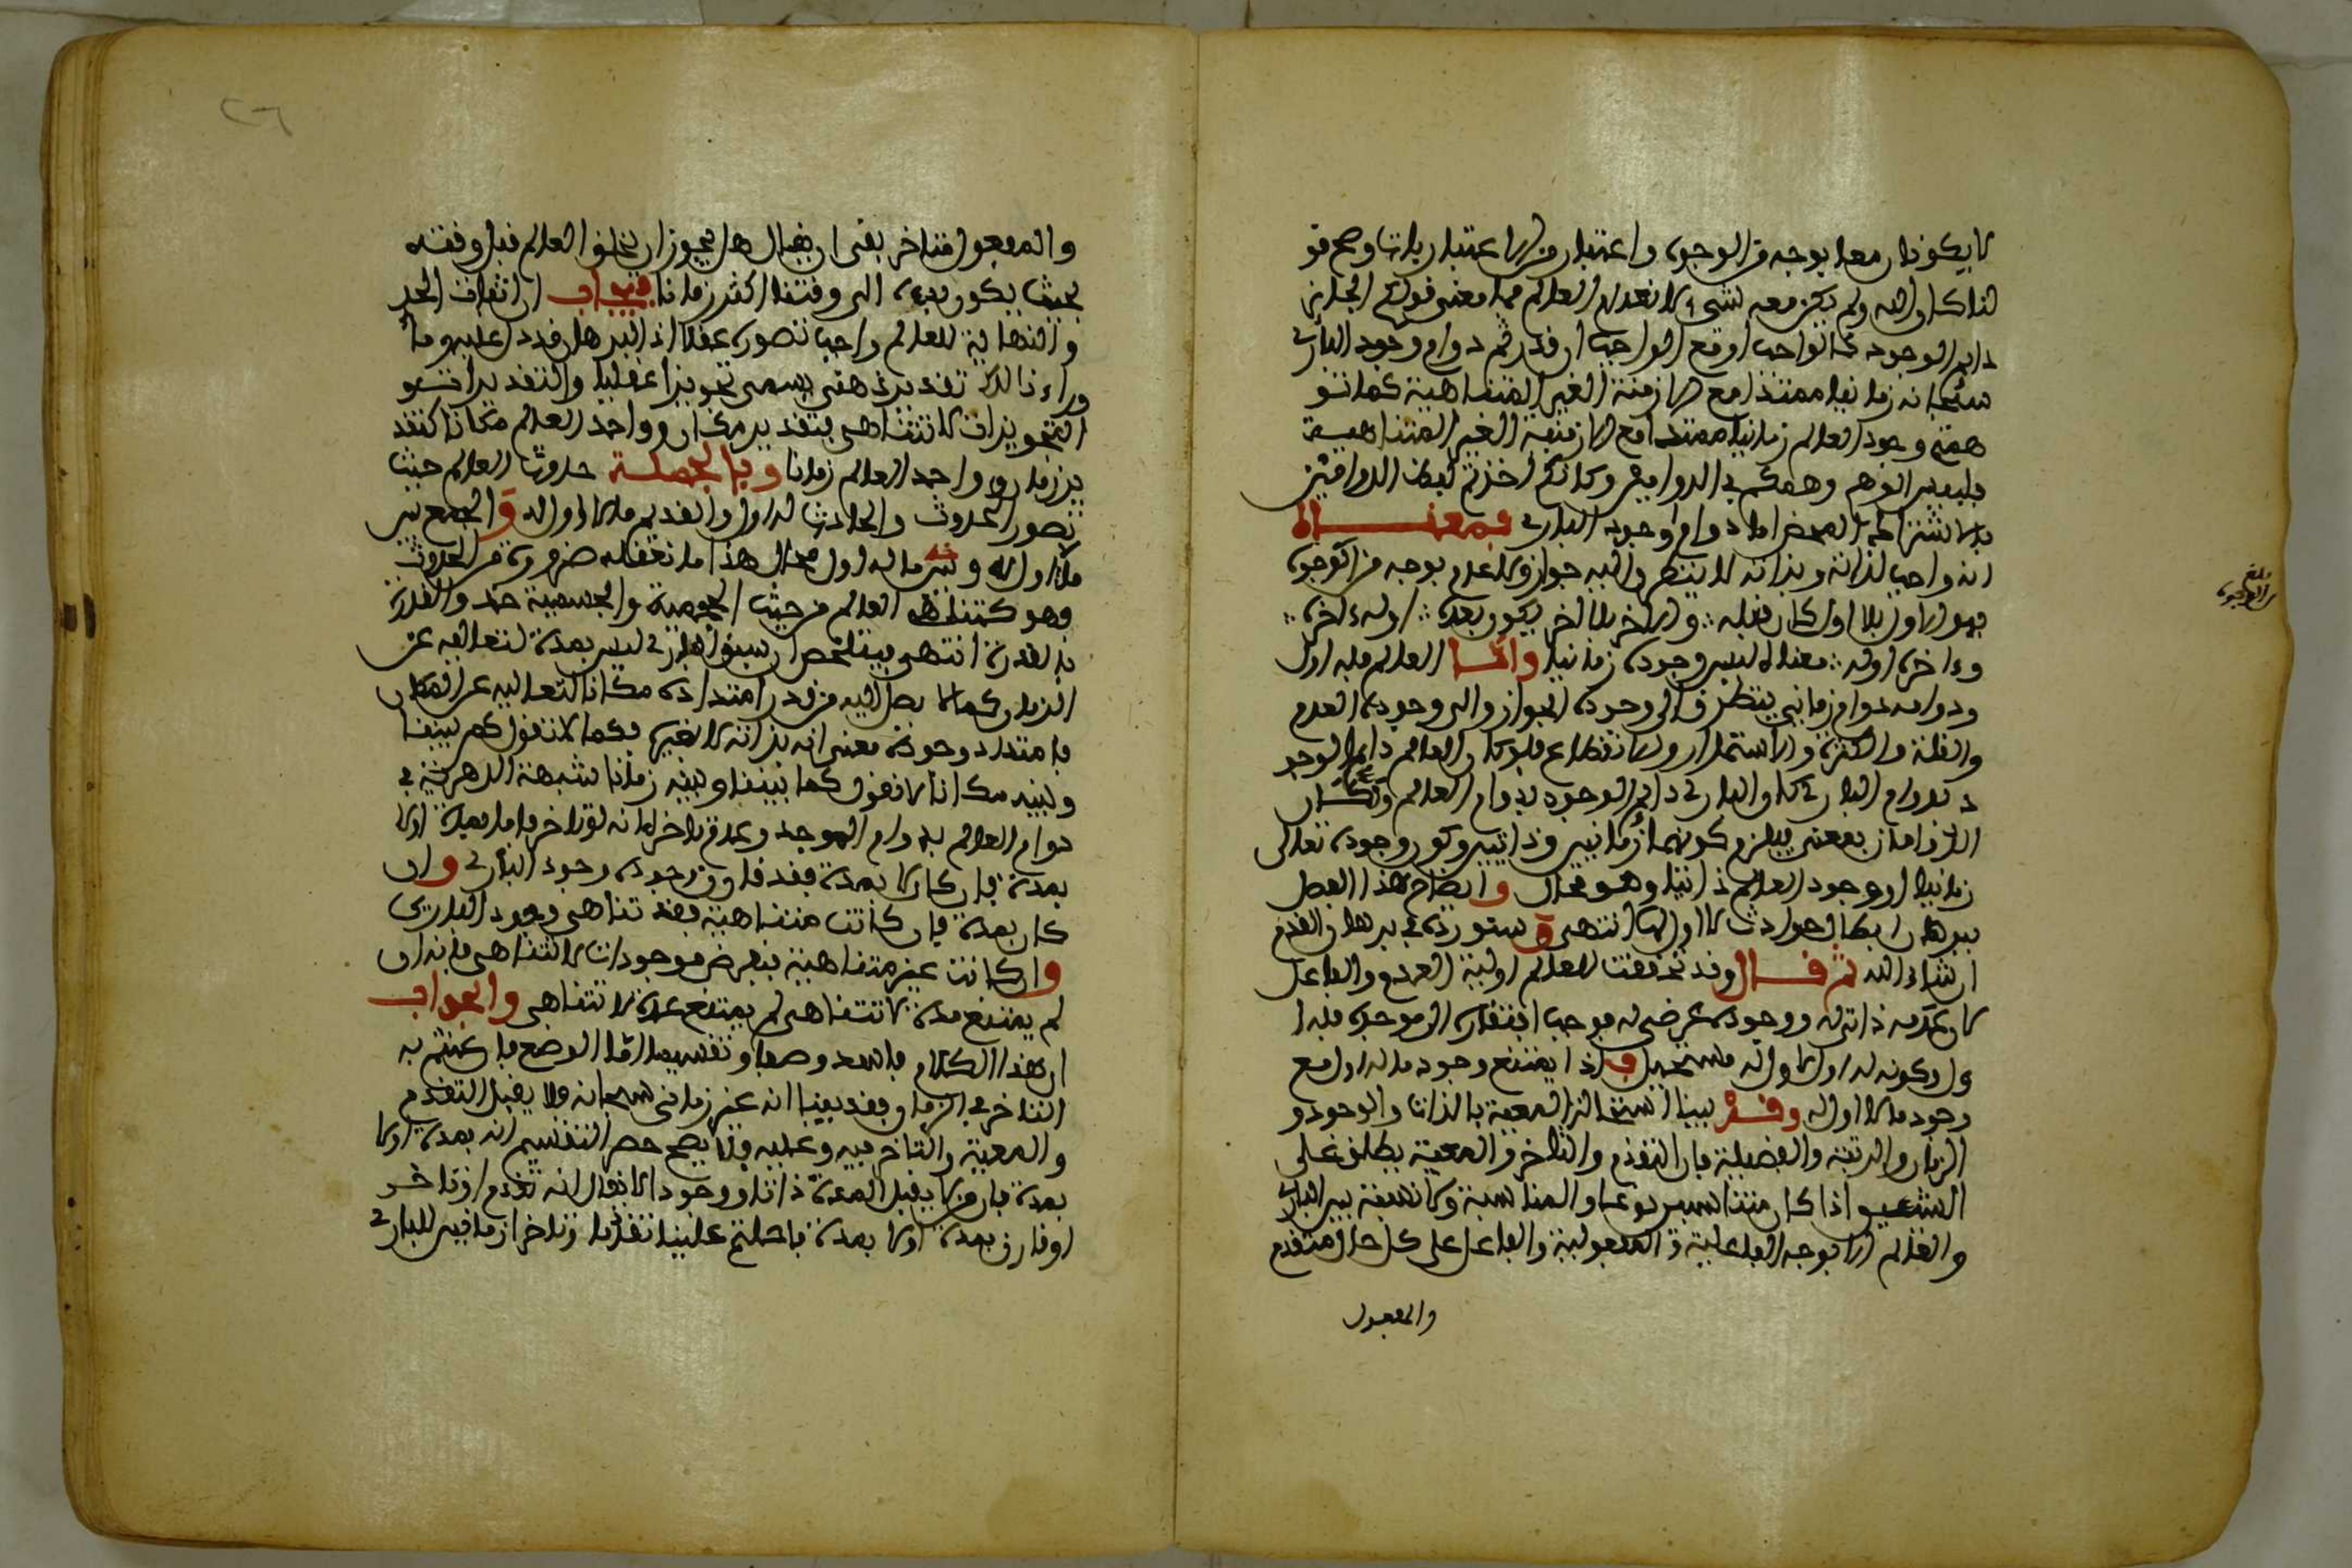 لا يكونان معا بوجه من الوجوه واعتبار من الاعتبارات وصح قو
لنا كان الله ولم يكن معه شيء لانعدام العالم فما معنى قولكم الجائز
دايم الوجود بالواجب او مع الواجب او قدرتم دوام وجود الباري
سبحانه زمانيا ممتدا مع الازمنة الغير المتناهية كما تو
همتم وجود العالم زمانيا ممتدا مع الازمنة الغير المتناهية
فليس الوهم وهمكم في الدوامين وكانكم اخذتم لفظ الدوامين
بالاشتراك المحض اما دوام وجود الباري فمعناه
انه واجب لذاته وبذاته لا يتطرق اليه جواز ولا عدم بوجه من الوجوه
فهو الاول بلا اول كان قبله والاخر بلا اخر يكون بعده اوله اخره
واخره اوله معناه ليس وجوده زمانيا واما العالم فله اول
ودوامه دوام زماني يتطرق الى وجوده الجواز والى وجوده العدم
والقلة والكثرة والاستمرار والانقطاع فلو كان العالم دايم الوجو
د بدوام الباري كان الباري دايم الوجود بدوام العالم وكان
الدوامان بمعنى فيلزم كونهما زمانيين وذاتيين وكون وجوده تعالى
زمانيا او وجود العالم ذاتيا وهو محال وايضاح هذا الفصل
ببرهان ابطال حوادث لا اول لها انتهى وستورده في برهان القدم
ان شاء الله ثم قال وقد تحققت للعالم اولية العدم والفاعل
كان عدمه ذاتي له ووجوده عرضي له موجب افتقاره الى موجده فله ا
ول وكونه له اول لا اول له مستحيل فاذا يمتنع وجود ما له اول مع
وجود ما لا اول له وقد بينا استحالة المعية بالذات والوجود و
الزمان والرتبة والفضيلة فان التقدم والتاخر والمعية يطلق على
الشيئين اذا كان متناسبين نوعا والمناسبة ولا نسبة بين الباري
والعالم الا بوجه الفاعلية والمفعولية والفاعل على كل حال متقدم
والمفعول
والمفعول متاخر بقى ان يقال هل يجوز ان يخلق العالم قبل وقته
بحيث يكون بدءه الى وقتنا اكثر زمانا فيجاب ان اثبات الحد
والنهاية للعالم واجب تصوره عقلا اذ البرهان قد دل عليه وما
وراء ذلك تقدير ذهني يسمى تجويزا عقليا والتقديرات و
التجويزات لا تتناهى بتقدير مكان وراء حد العالم مكانا كتقد
ير زمان وراء حد العالم زمانا وبالجملة حدوث العالم حيث
تصور الحدوث والحادث له اول والقديم ما لا اول له والجمع بين
ما لا اول له وبين ما له اول محال هذا ما نعقله ضرورة من الحدوث
وهو كتناهي العالم من حيث الحجمية والجسمية حد والقدرة
بالقدرة انتهى فيتلخص ان سبق الباري ليس بمدة لتعاليه عن
الزمان كما لا يصل اليه من قدر امتداده مكانا لتعاليه عن المكان
فامتداد وجوده معنى انه بذاته لا بغيره فكما لا تقول كم بيننا
وبينه مكانا لا نقول كما بيننا وبينه زمانا شبهة الدهرية في
دوام العالم بدوام الموجد وعدم تاخر انه لو تاخر فاما بمدة اولا
بمدة فان كان لا بمدة فقد قارن وجوده وجود الباري وان
كان بمدة فان كانت متناهية فقد تناهى وجود الباري
وان كانت غير متناهية بفرض موجودات لا تتناهى فانه ان
لم يمتنع مدة لا تتناهى لم يمتنع عدة لا تتناهى والجواب
ان هذا الكلام فاسد وضعا وتقسيما اما الوضع فما عنيتم به
التاخر في الزمان فقد بينا انه غير زماني سبحانه ولا يقبل التقدم
والمعية والتاخر فيه وعليه فلا يصح حصر التقسيم انه بمدة اولا
بمدة فان ما لا يقبل المدة ذاتا ووجودا لا يقال انه تقدم او تاخر
او قارن بمدة اولا بمدة فاحلتم علينا تقدما وتاخرا زمانيين للباري